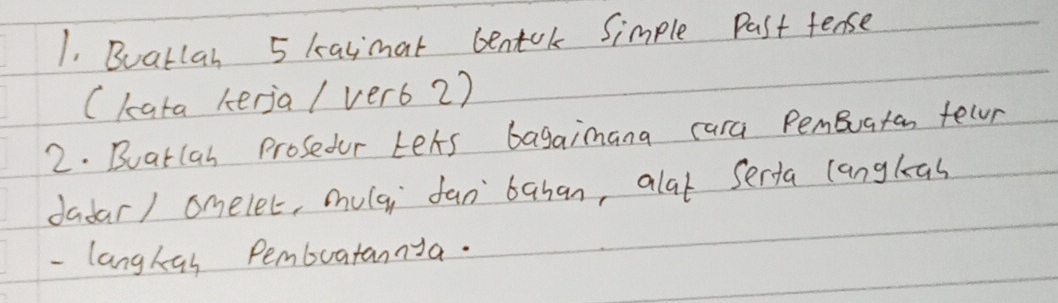 1. Buatlah 5 kalimat bentuk Simple Past tense
(kata kerja / verb 2)
2. Buatlah Prosedur teks bagaimana cara Pembuatan telur
dadar / omelet, mulai dari bahan, alat serta langkah
- langkah Pembuatannya.